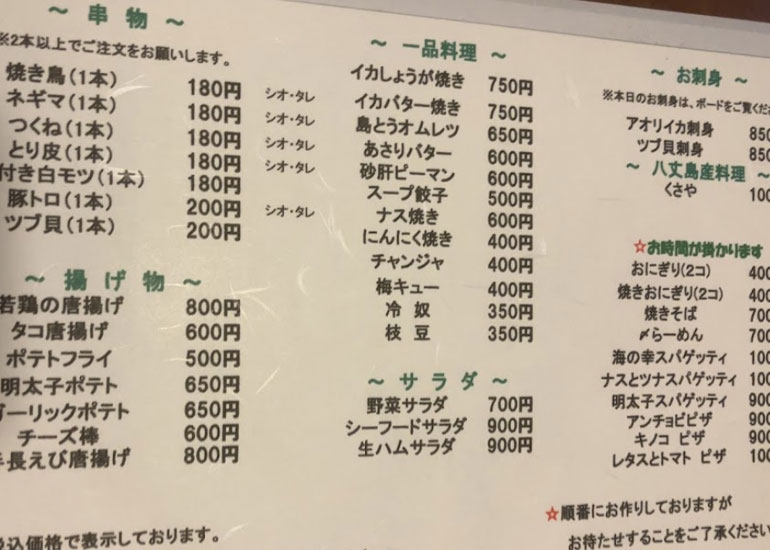 ～ 串 物 ～
※2本以上でご注文をお願いします。
焼き鳥(1本) 180円 シオ・タレ
ネギマ(1本) 180円 シオ・タレ
つくね(1本) 180円 シオ・タレ
とり皮(1本) 180円 シオ・タレ
付き白モツ(1本) 180円
豚トロ(1本) 200円 シオ・タレ
ツブ貝(1本) 200円
～ 揚 げ 物 ～
若鶏の唐揚げ 800円
タコ唐揚げ 600円
ポテトフライ 500円
明太子ポテト 650円
ガーリックポテト 650円
チーズ棒 600円
手長えび唐揚げ 800円
税込価格で表示しております。
～ 一品料理 ～
イカしょうが焼き 750円
イカバター焼き 750円
島とうオムレツ 650円
あさりバター 600円
砂肝ピーマン 600円
スープ餃子 500円
ナス焼き 600円
にんにく焼き 400円
チャンジャ 400円
梅キュー 400円
冷 奴 350円
枝 豆 350円
～ サ ラ ダ ～
野菜サラダ 700円
シーフードサラダ 900円
生ハムサラダ 900円
～ お刺身 ～
※本日のお刺身は、ボードをご覧くだ
アオリイカ刺身 850
ツブ貝刺身 850
～ 八丈島産料理 ～
くさや 100
☆お時間が掛かります
おにぎり(2コ) 400
焼きおにぎり(2コ) 400
焼きそば 700
〆らーめん 700
海の幸スパゲッティ 100
ナスとツナスパゲッティ 100
明太子スパゲッティ 900
アンチョビピザ 900
キノコ ピザ 900
レタスとトマト ピザ 100
☆順番にお作りしておりますが
お待たせすることをご了承ください